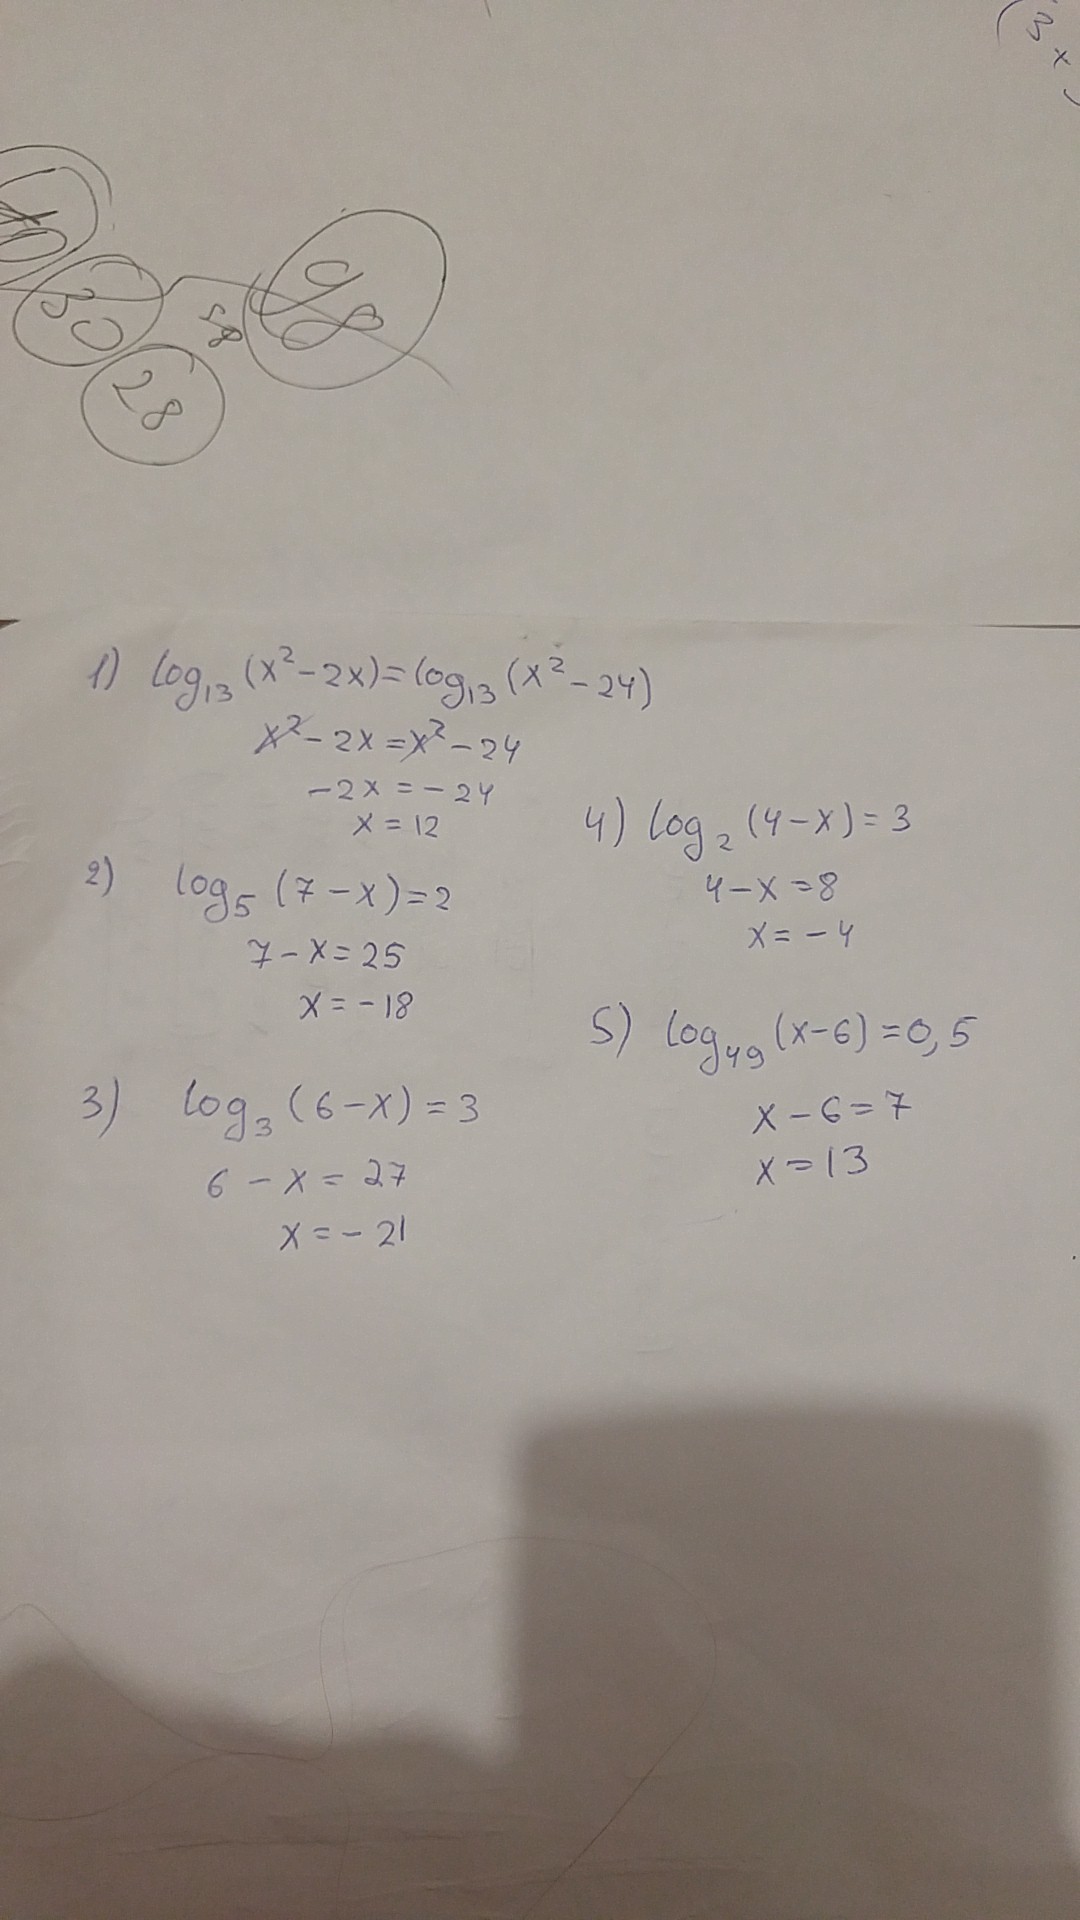 (3x)
98
58
30
28
1) log₁₃(x²-2x)=log₁₃(x²-24)
x²-2x=x²-24
-2x=-24
x=12
2) log₅(7-x)=2
7-x=25
x=-18
3) log₃(6-x)=3
6-x=27
x=-21
4) log₂(4-x)=3
4-x=8
x=-4
5) log₄₉(x-6)=0,5
x-6=7
x=13